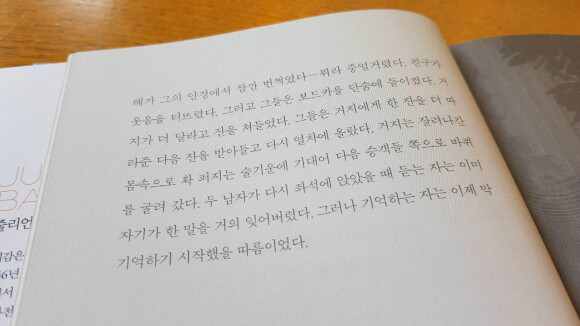 해가 그의 안경에서 잠깐 번쩍였다―뭐라 중얼거렸다. 친구가
웃음을 터뜨렸다. 그리고 그들은 보드카를 단숨에 들이켰다. 거
지가 더 달라고 잔을 쳐들었다. 그들은 거지에게 한 잔을 더 따
라준 다음 잔을 받아들고 다시 열차에 올랐다. 거지는 잘려나간
몸속으로 확 퍼지는 술기운에 기대어 다음 승객들 쪽으로 바퀴
를 굴려 갔다. 두 남자가 다시 좌석에 앉았을 때 듣는 자는 이미
자기가 한 말을 거의 잊어버렸다. 그러나 기억하는 자는 이제 막
기억하기 시작했을 따름이었다.
JU
BA
줄리언